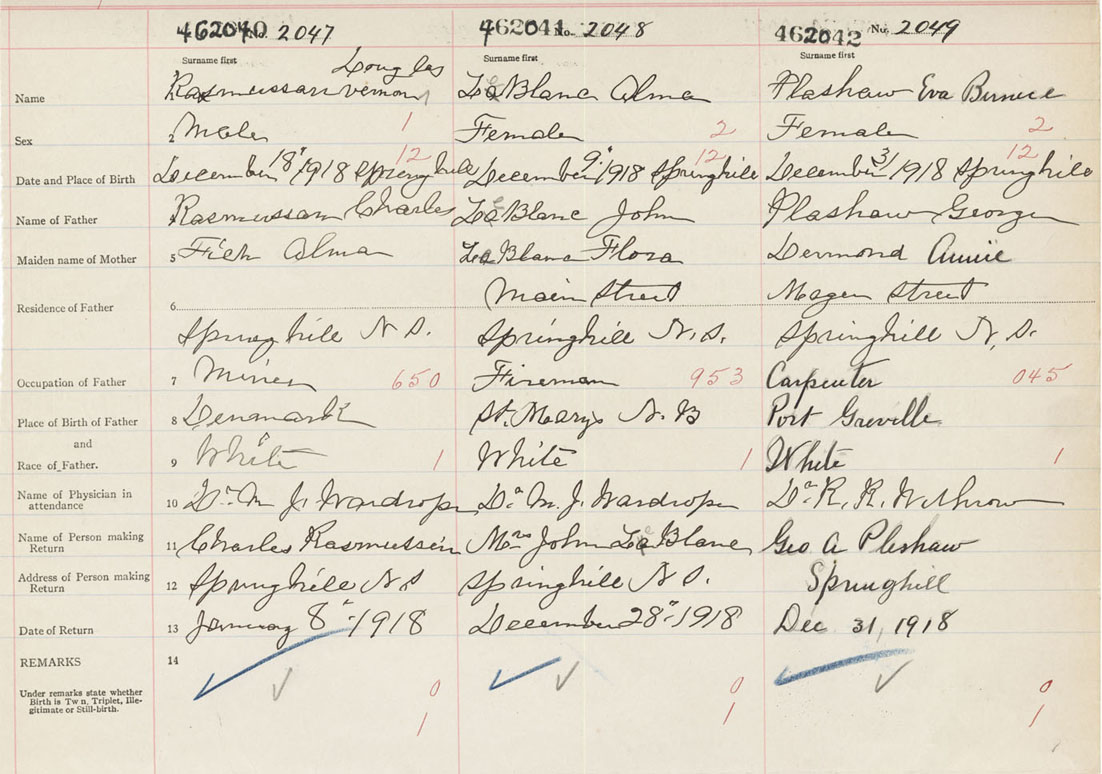 462040 No. 2047 462041 No. 2048 462042 No. 2049
Surname first Surname first Surname first
Douglas
Name Rasmussan Vernon Le Blanc Alma Plashaw Eva Bernice
Sex 2 Male 1 Female 2 Female 2
Date and Place of Birth December 18" 1918 Springhill 12 December 9" 1918 Springhill 12 December 31 1918 Springhill 12
Name of Father Rasmussan Charles Le Blanc John Plashaw George
Maiden name of Mother 5 Alma Le Blanc Flora Dermond Annie
Residence of Father 6 Main Street Street
Springhill N S. Springhill N. S. Springhill N. S.
Occupation of Father 7 Miner 650 Fireman 953 Carpenter 045
Place of Birth of Father 8 Denmark St. Marys N. B Port Greville
and
Race of Father. 9 White 1 White 1 White 1
Name of Physician in
attendance 10 Dr M. J. Wardrope Dr M. J. Wardrope Dr R. R. Withrow
Name of Person making
Return 11 Charles Rasmussen Mrs John Le Blanc Geo A Pleshaw
Address of Person making
Return 12 Springhill N S Springhill N S. Springhill
Date of Return 13 January 8" 1918 December 28" 1918 Dec 31, 1918
REMARKS 14
Under remarks state whether
Birth is Twn, Triplet, Ille-
gitimate or Still-birth.
0 0 0
1 1 1